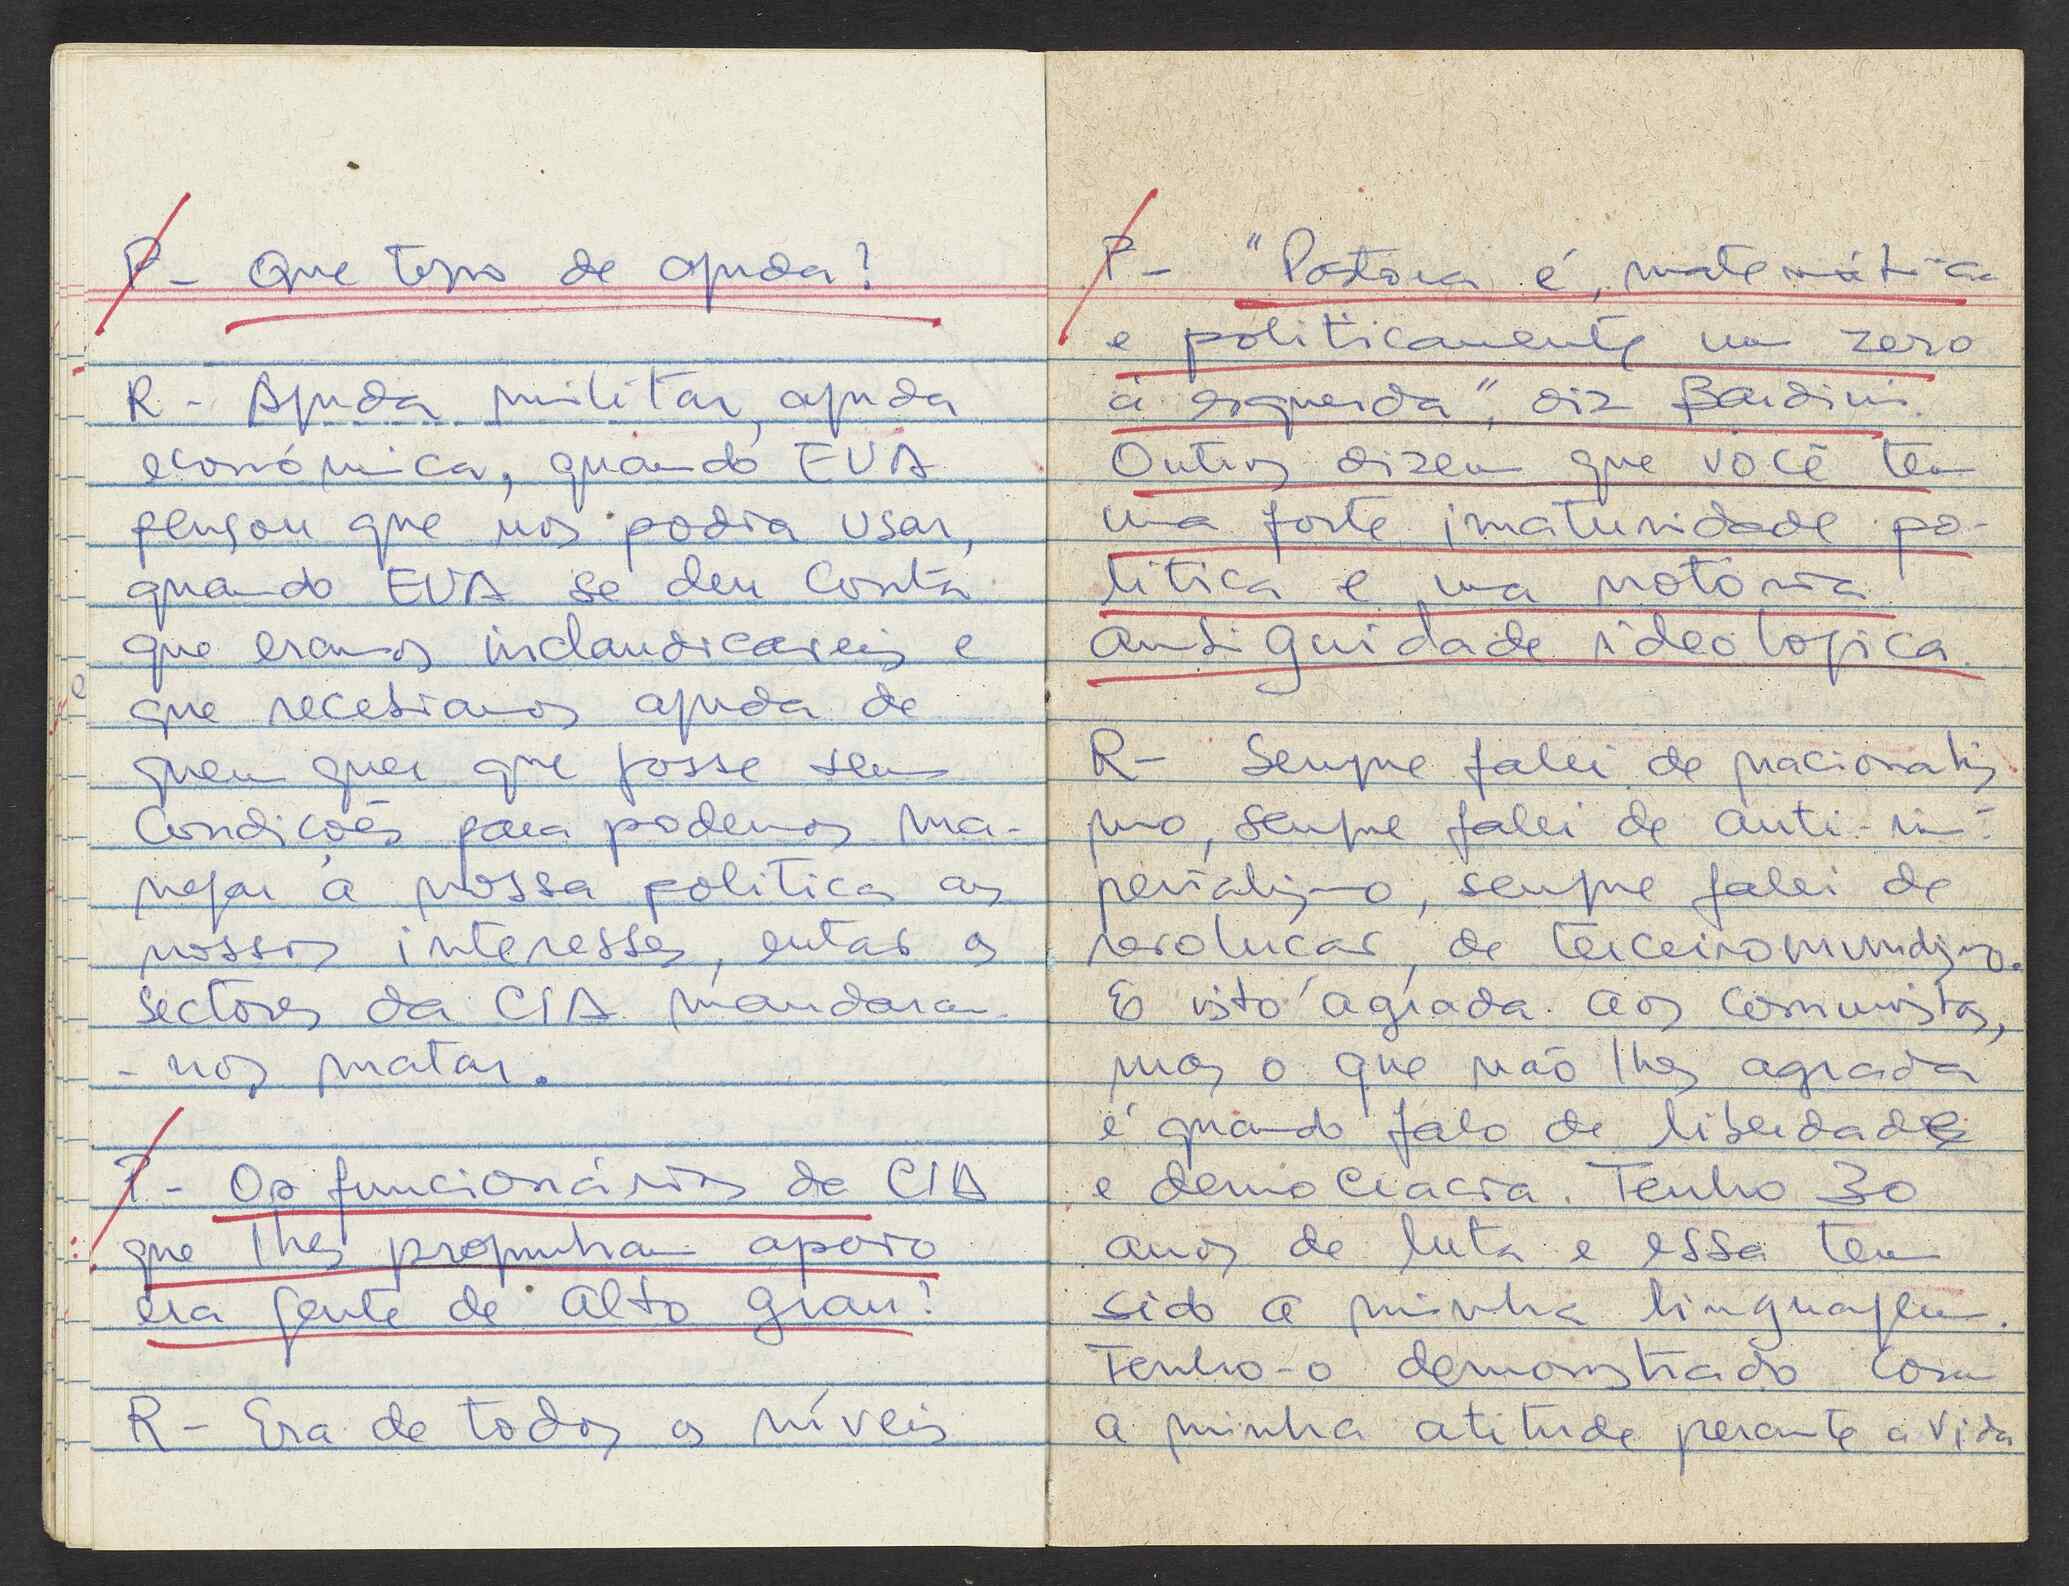 P- Que tipo de ajuda?
R- Ajuda militar, ajuda
económica, quando EUA
pensou que nos podia usar,
quando EUA se deu conta
que eramos inclaudicaveis e
que recebiamos ajuda de
quem quer que fosse sem
condições para podermos ma-
nejar a nossa politica as
nossos interesses, entao os
sectores da CIA mandaram
-nos matar.
P- Os funcionários da CIA
que lhes propunham apoio
era gente de alto grau?
R- Era de todos os níveis
P- "Pastora é, matemática
e politicamente um zero
à esquerda", diz Bardini.
Outros dizem que você tem
uma forte imaturidade po-
litica e uma notória
antiguidade ideologica.
R- Sempre falei de nacionalis
mo, sempre falei de anti-im-
perialismo, sempre falei de
revolucao, de terceiromundismo.
E isto agrada aos comunistas,
mas o que não lhes agrada
é quando falo de liberdade
e democracia. Tenho 30
anos de luta e essa tem
sido a minha linguagem.
Tenho-o demonstrado com
a minha atitude perante a vida